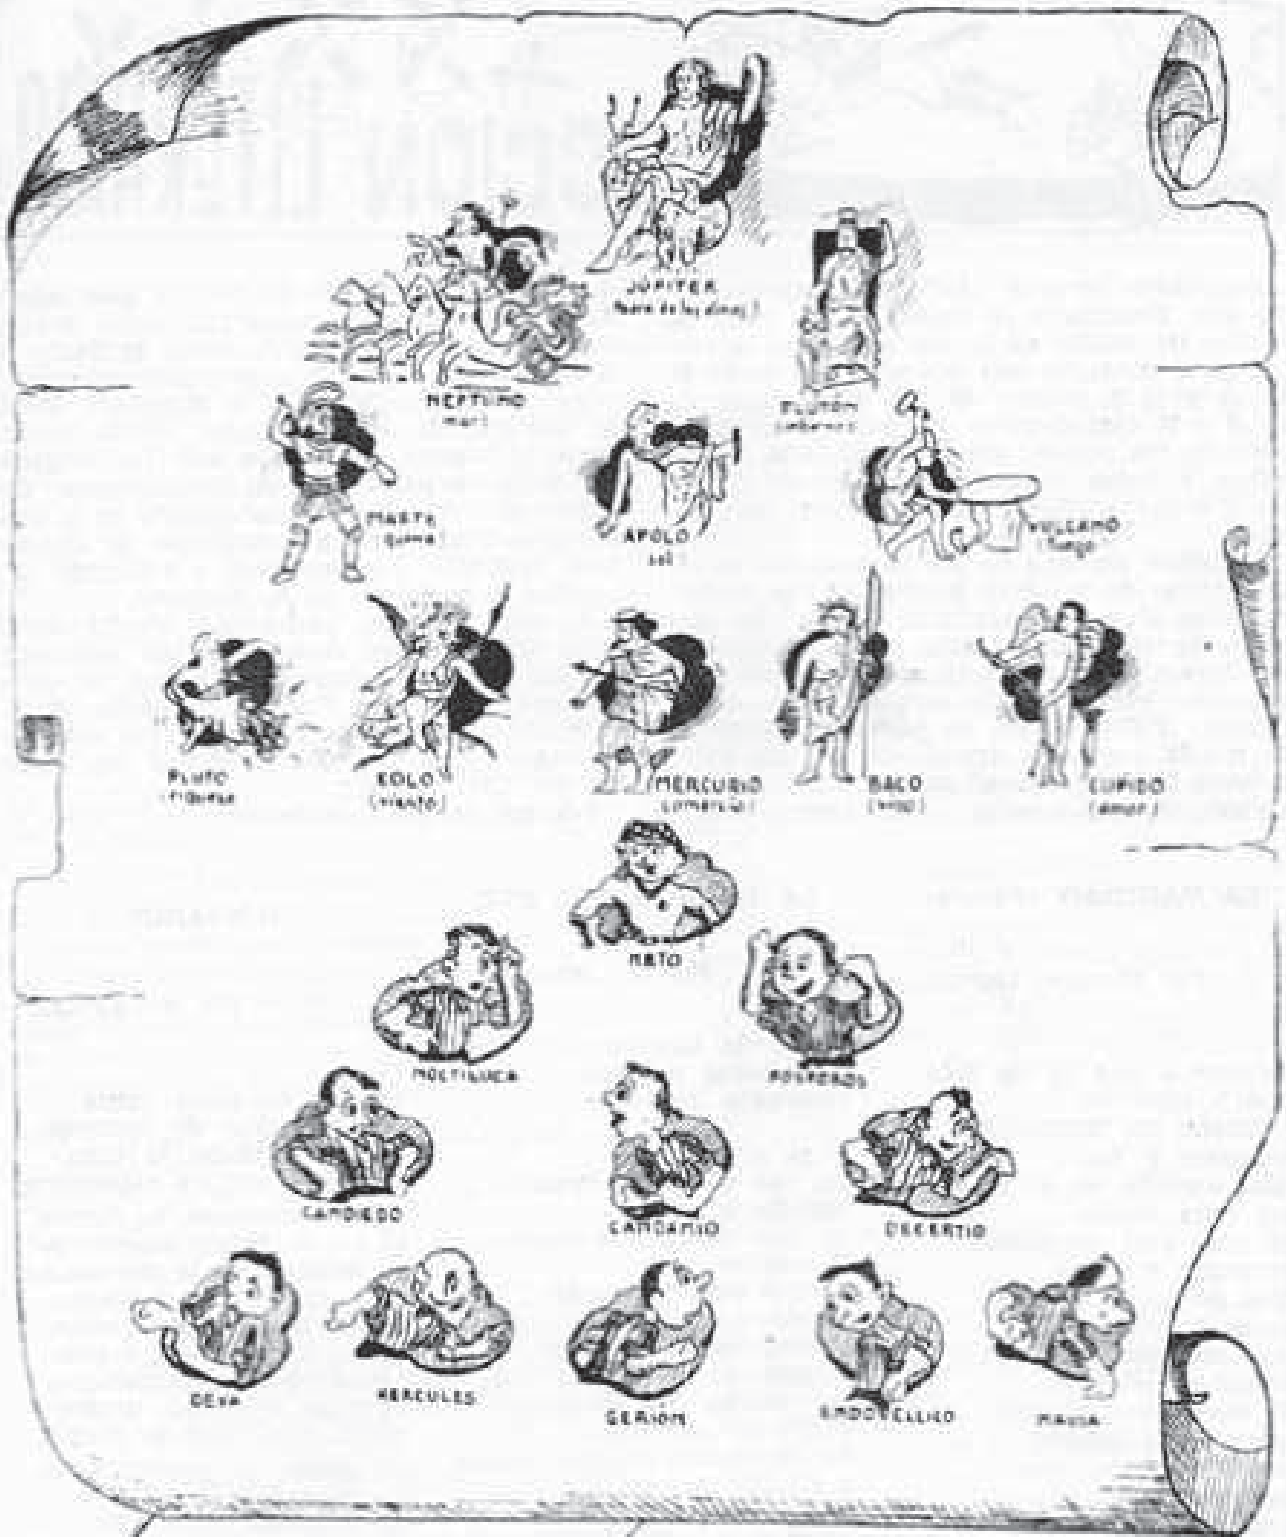 JÚPITER
(Padre de los dioses)
NEPTUNO
(mar)
PLUTÓN
(infierno)
MARTE
(guerra)
APOLO
(sol)
VULCANO
(fuego)
PLUTO
(riqueza)
EOLO
(viento)
MERCURIO
(comercio)
BACO
(vino)
CUPIDO
(amor)
NETO
NOCTILUCA
FOSFOROS
CANDIEDO
CANDAMIO
DECERTIO
DEVA
HERCULES
GERIÓN
ENDOVELLICO